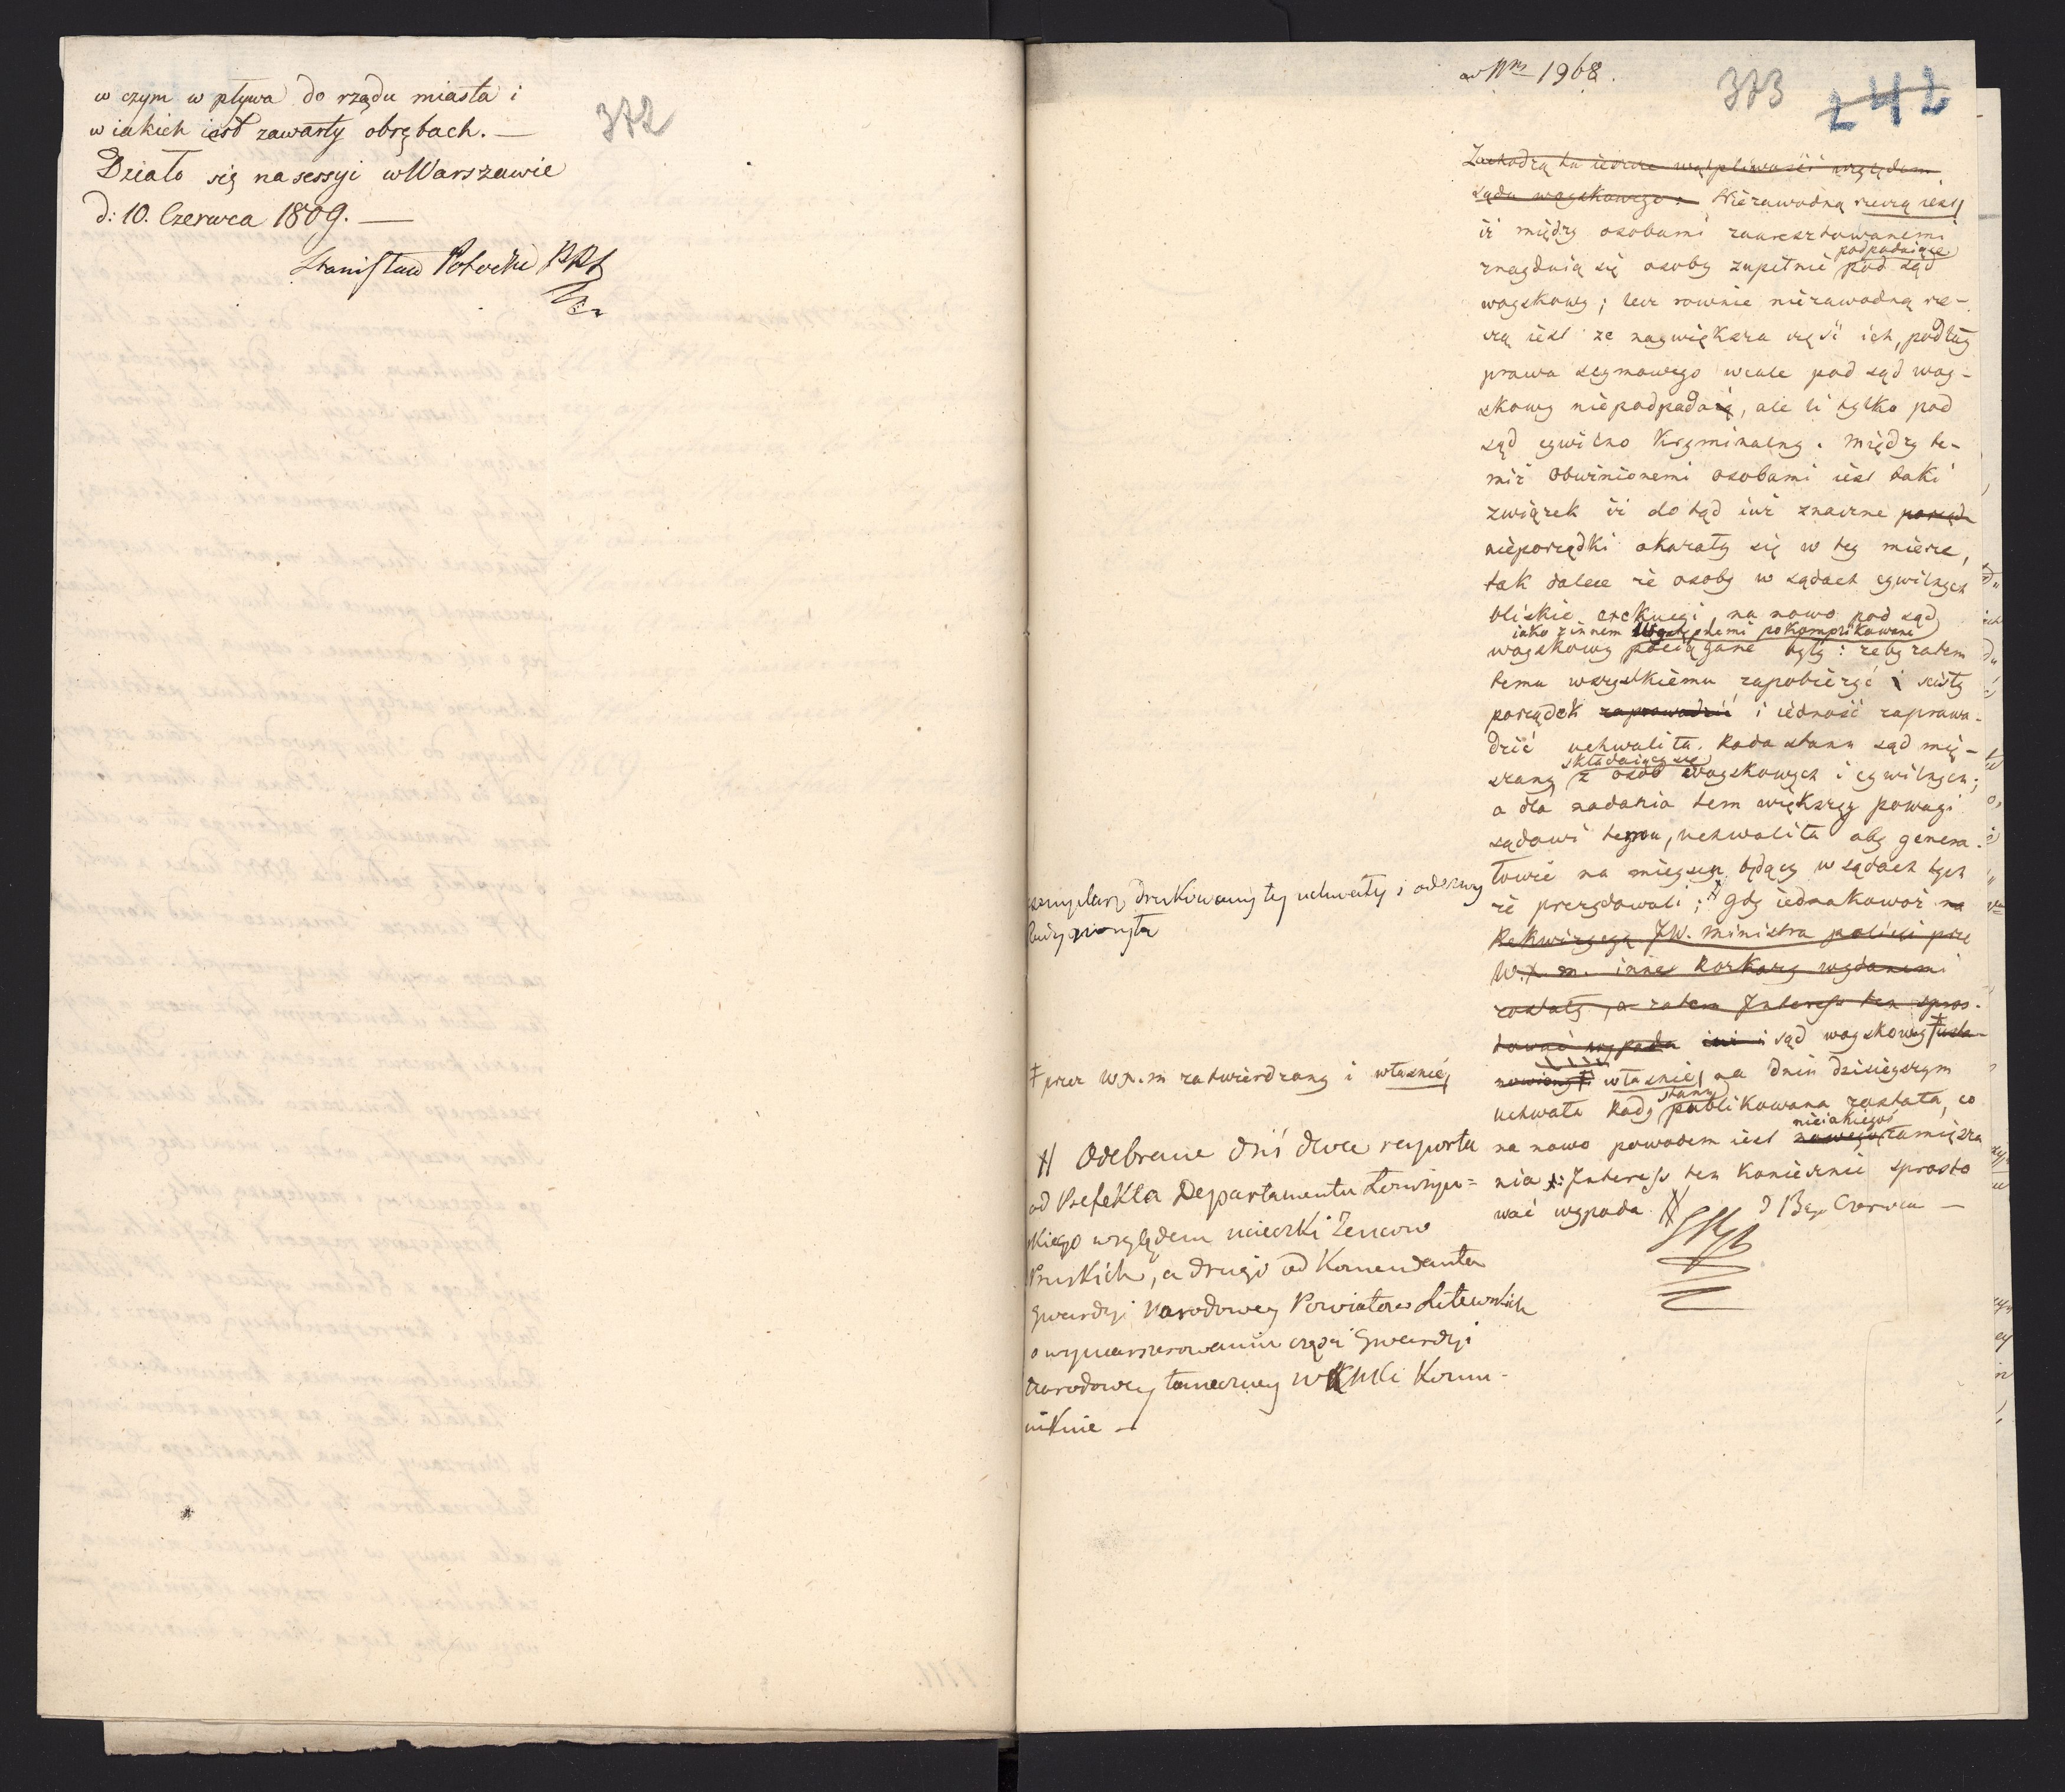 w czym wpływa do rządu miasta i
w iakich iest zawarty obrębach. —
Działo się na sessyi w Warszawie
d: 10. Czerwca 1809. —
Stanisław Potocki
372
ad Nrm 1968.
373
242
Zachodzą tu ieszcze wątpliwości względem
sądu woyskowego. Niezawodną rzeczą iest
iż między osobami zaaresztowanemi
znayduią się osoby zupełnie podpadaiące pod sąd
woyskowy; lecz rownie niezawodną rze-
czą iest ze naywiększa część ich, podług
prawa seymowego wcale pod sąd woy-
skowy niepodpadaią, ale li tylko pod
sąd cywilno kryminalny. Między te-
miż obwinionemi osobami iest taki
związek iż dotąd iuż znaczne porząd
nieporządki okazały się w tey mierze,
tak dalece że osoby w sądach cywilnych
bliskie exekucyi, na nowo pod sąd
iako z innem Występkemi pokomplikowane
woyskowy pociągane były: żeby zatem
temu wszystkiemu zapobierzć i scisły
porządek zaprowadzić i iedność zaprowa-
dzić uchwaliła Rada stanu sąd mię-
szany składaiący się z osób woyskowych i cywilnych;
a dla nadania tem większey powagi
sądowi temu, uchwaliła aby genera-
łowie na mieyscu będący w sądach tych
że prezydowali; gdy iednakowoż na
Rekwizycyą JW. Ministra policyi prze
W.X.M. inne Rozkazy wydanemi
zostały, a zatem Interess ten spros-
tować wypada iuż i sąd woyskowy usta-
nowiony własnie, na dniu dzisieyszym
uchwała Rady stanu publikowana została, co
na nowo powodem iest nowego nieiakiegoś zamięsza
nia: Interess ten koniecznie sprosto
wać wypada. d 13 Czerwca —
exemplarz drukowany tey uchwały i odezwy
Rady
przez W.X.M zatwierdzony i własnie,
Odebrane dziś dwa raporta
od Prefekta Departamentu Łomżyń=
skiego względem ucieczki Jencow
Pruskich, a drugi od Komendanta
Gwardyi Narodowey Powiatow Litewskich
o wymaszerowaniu częsci Gwardyi
Narodowey tameczney W Komu-
nikuie —